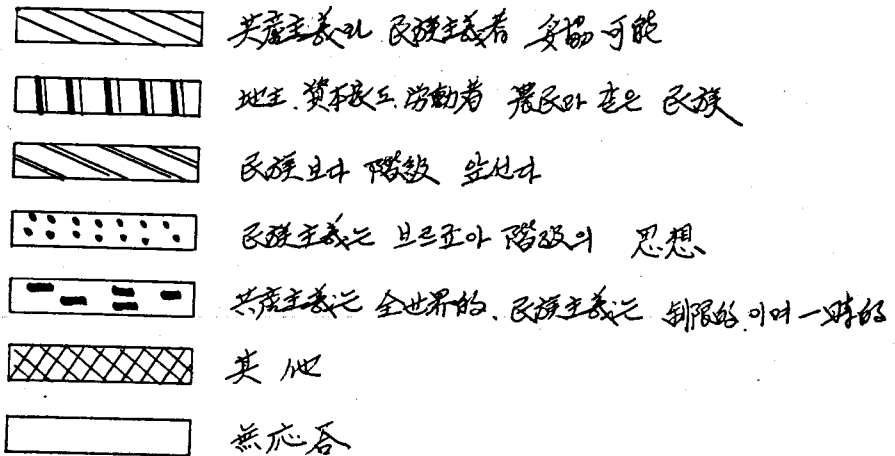 共産主義와 民族主義者 妥協 可能
地主.資本家도 労動者 農民과 같은 民族
民族보다 階級 앞선다
民族主義는 브르죠아 階級의 思想
共産主義는 全世界的、民族主義는 制限的이며 一時的
其他
無応答